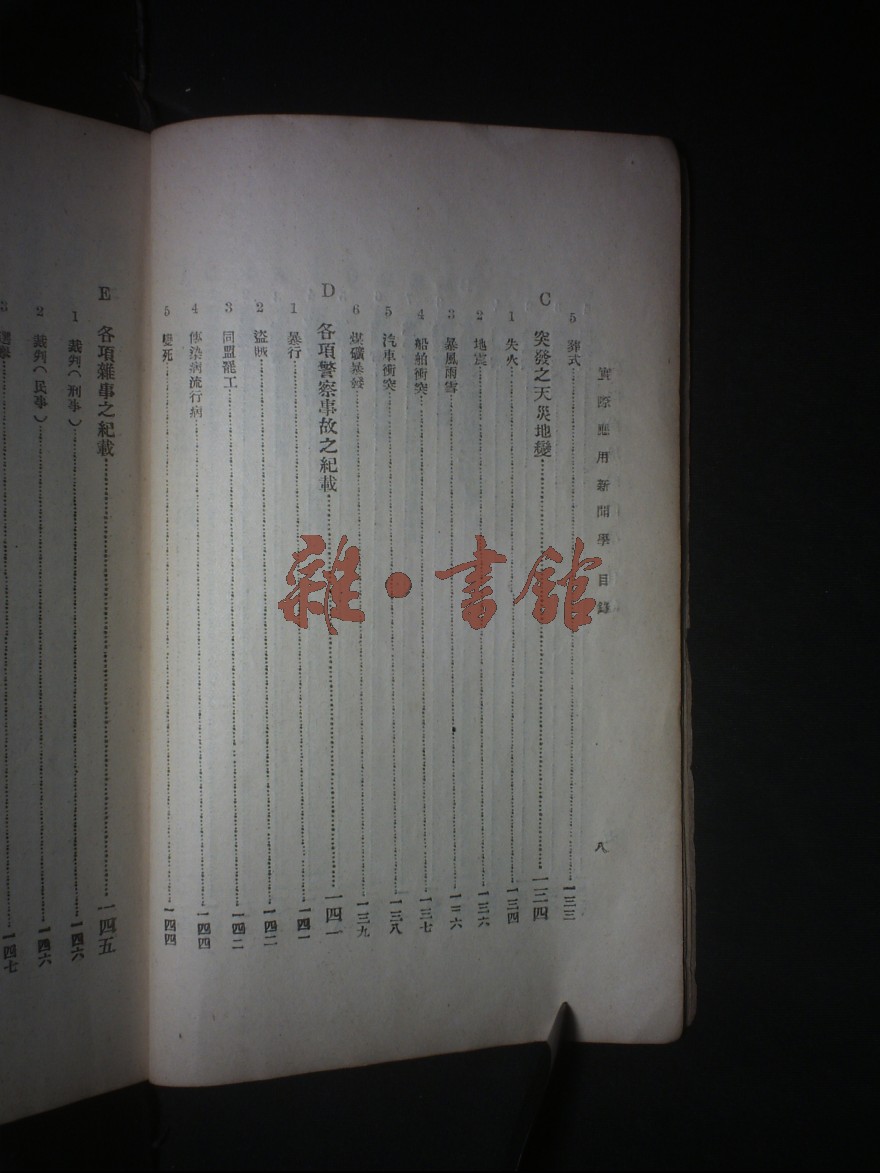 實際應用新聞學 目錄 八
5 葬式 一三三
C 突發之天災地變 一三四
1 失火 一三四
2 地震 一三六
3 暴風雨雪 一三六
4 船舶衝突 一三七
5 汽車衝突 一三八
6 煤礦暴發 一三九
D 各項警察事故之紀載 一四一
1 暴行 一四一
2 盜賊 一四二
3 同盟罷工 一四二
4 傳染病流行病 一四四
5 變死 一四四
E 各項雜事之紀載 一四五
1 裁判(刑事) 一四六
2 裁判(民事) 一四六
3 一四七
雜·書館